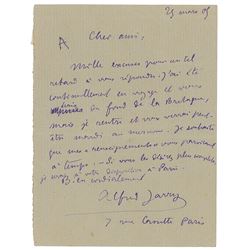 25 mars 05
Cher ami,
Mille excuses pour un tel
retard à vous répondre. J'ai été
continuellement en voyage et vous
écris du fond de la Bretagne,
mais je rentre et vous verrai peut-
être mardi au mercure. Je souhaite
que mes renseignements vous parviennent
à temps. Si vous les désirez plus complets
je serai à votre disposition à Paris.
Bien cordialement
Alfred Jarry
7 rue Cassette Paris